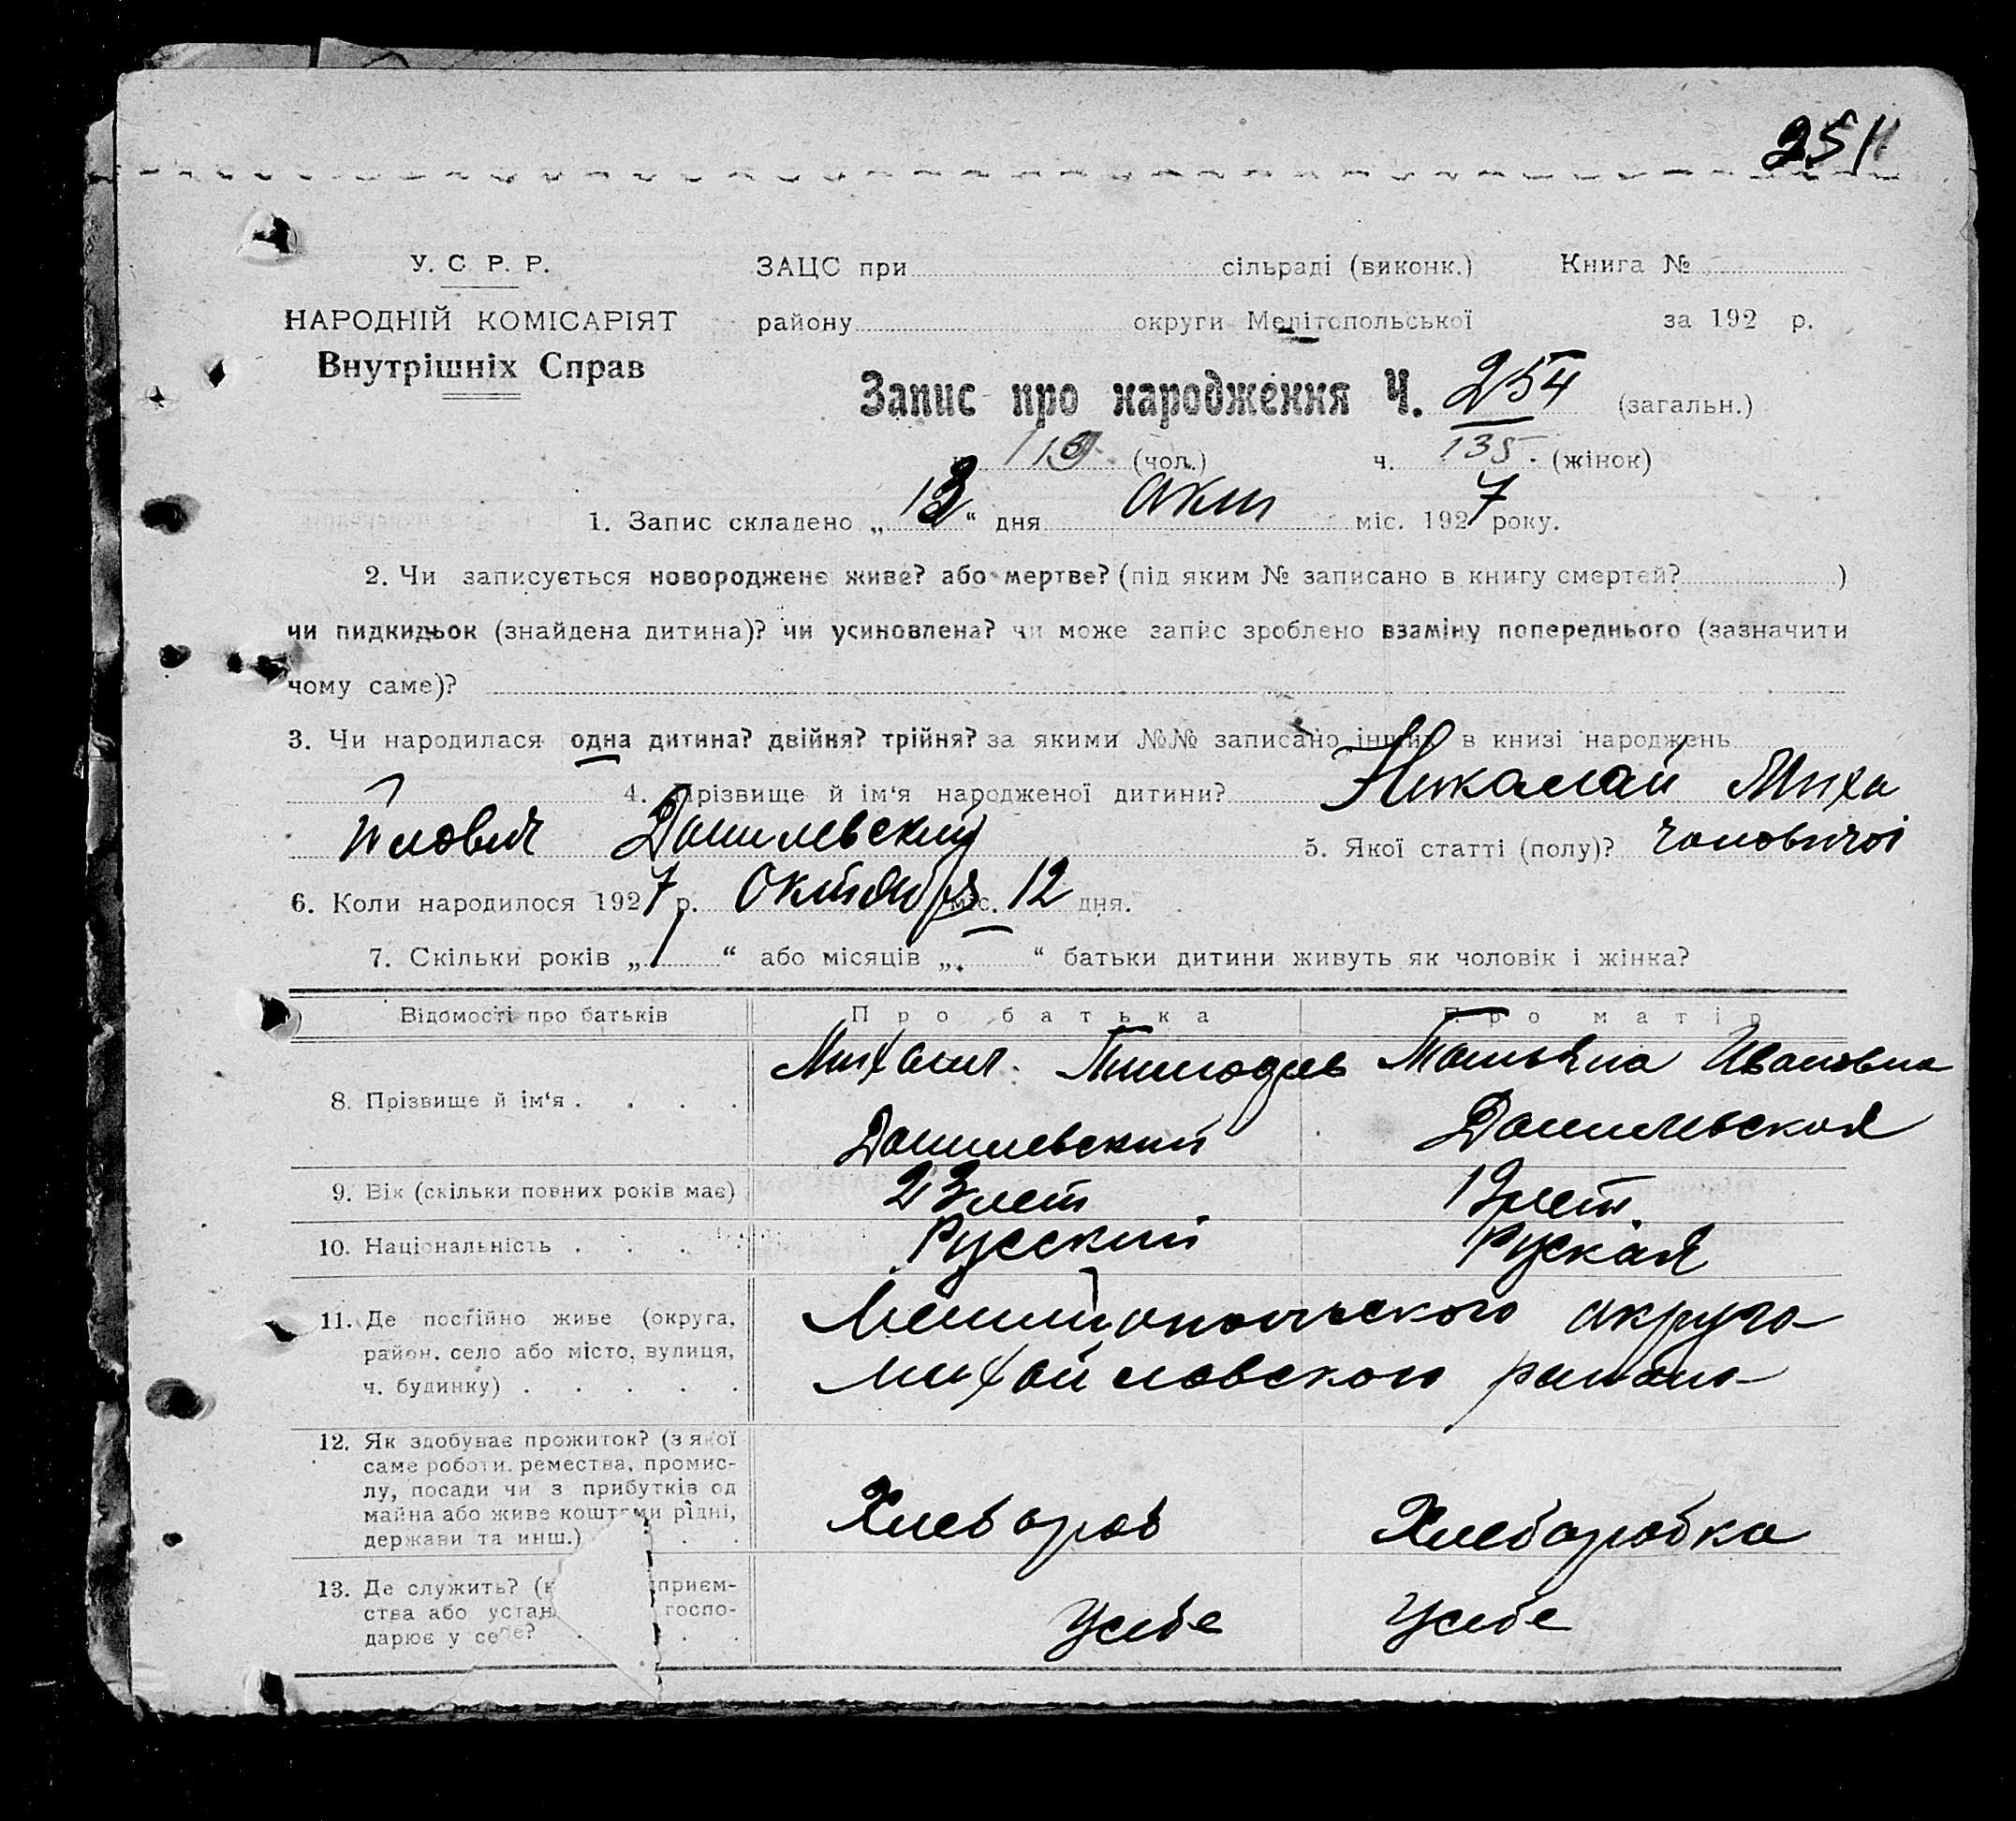 251
У. С. Р. Р.
НАРОДНІЙ КОМІСАРІЯТ
Внутрішніх Справ
ЗАЦС при сільраді (виконк.) Книга №
району округи Мелітопольської за 192 р.
Запис про народження Ч. 254 (загальн.)
119 (чол.) ч. 135. (жінок)
1. Запис складено „13“ дня Окт міс. 1927 року.
2. Чи записується новороджене живе? або мертве? (під яким № записано в книгу смертей? )
чи пидкидьок (знайдена дитина)? чи усиновлена? чи може запис зроблено взаміну попереднього (зазначити
чому саме)?
3. Чи народилася одна дитина? двійня? трійня? за якими №№ записано інших в книзі народжень
4. Прізвище й ім‘я народженої дитини? Николай Миха
йлович Данилевский 5. Якої статті (полу)? чоловичоі
6. Коли народилося 1927 р. Октября міс. 12 дня.
7. Скільки років „1“ або місяців „ “ батьки дитини живуть як чоловік і жінка?
Відомості про батьків Про батька Про матір
8. Прізвище й ім‘я . . . . Михаил Данилевский Татьяна Ивановна Данилевская
9. Вік (скільки повних років має) 23 лет 19 лет
10. Національність . . . . Русский Руская
11. Де постійно живе (округа,
район, село або місто, вулиця,
ч. будинку) . . . . .
Мелитопольского округа
михайловского района
12. Як здобуває прожиток? (з якої
саме роботи, ремества, промис-
лу, посади чи з прибутків од
майна або живе коштами рідні,
держави та инш.) . .
Хлебороб Хлеборобка
13. Де служить? ( приєм-
ства або устан госпо-
дарює у себе? . . .
Усебе Усебе